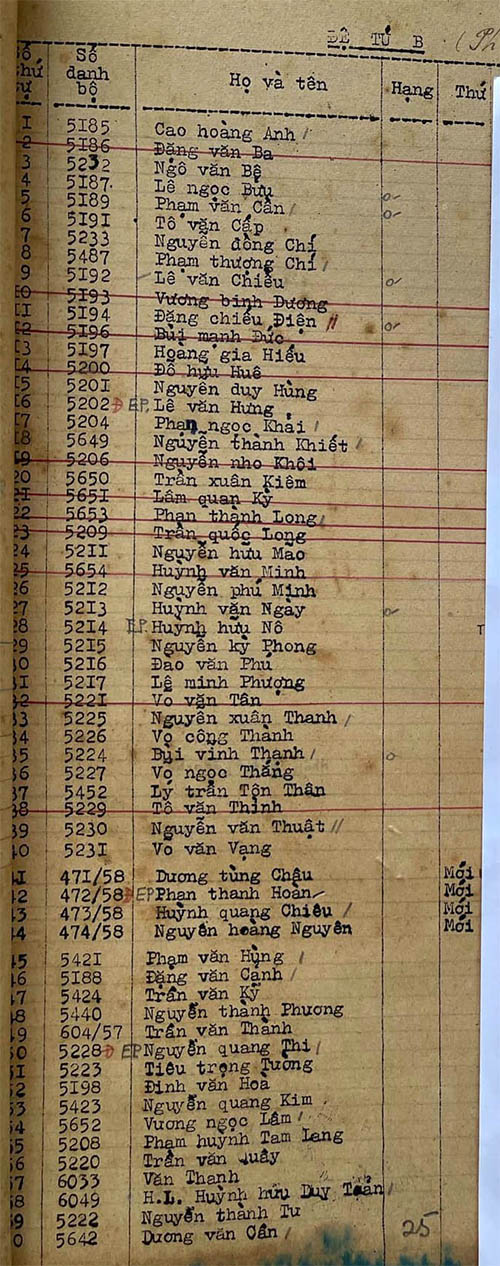 ĐỆ TỨ B (Ph
Số danh bộ Họ và tên Hạng Thứ
1 5185 Cao hoàng Anh /
2 5186 Đặng văn Ba
3 5232 Ngô văn Bê
4 5187 Lê ngọc Bửu
5 5189 Phạm văn Cần /
6 5191 Tô văn Cấp
7 5233 Nguyễn đồng Chí
8 5487 Phạm thượng Chí /
9 5192 Lê văn Chiếu
10 5193 Vương bình Dương
11 5194 Đặng chiếu Điện //
12 5196 Bùi mạnh Đức
13 5197 Hoàng gia Hiếu
14 5200 Đỗ hữu Huê
15 5201 Nguyễn duy Hùng
16 5202 Đ EP. Lê văn Hưng
17 5204 Phan ngọc Khải /
18 5649 Nguyễn thành Khiết /
19 5206 Nguyễn nho Khôi
20 5650 Trần xuân Kiêm
21 5651 Lâm quan Kỳ
22 5653 Phan thành Long /
23 5209 Trần quốc Long
24 5211 Nguyễn hữu Mao
25 5654 Huỳnh văn Minh
26 5212 Nguyễn phú Minh
27 5213 Huỳnh văn Ngày
28 5214 EP. Huỳnh hữu Nô T
29 5215 Nguyễn kỳ Phong
30 5216 Đào văn Phú
31 5217 Lê minh Phượng
32 5221 Vo văn Tân
33 5225 Nguyễn xuân Thanh /
34 5226 Vo công Thành
35 5224 Bùi vinh Thạnh /
36 5227 Vo ngọc Thắng
37 5452 Lý trần Tôn Thân
38 5229 Tô văn Thịnh
39 5230 Nguyễn văn Thuật //
40 5231 Vo văn Vạng
41 471/58 Dương tùng Châu Mới
42 472/58 Đ EP Phan thanh Hoàn Mới
43 473/58 Huỳnh quang Chiêu / Mới
44 474/58 Nguyễn hoàng Nguyên Mới
45 5421 Phạm văn Hùng /
46 5188 Đặng văn Cảnh /
47 5424 Trần văn Kỹ
48 5440 Nguyễn thành Phương
49 604/57 Trần văn Thành
50 5228 Đ EP Nguyễn quang Thi /
51 5223 Tiêu trọng Tường
52 5198 Đinh văn Hoà
53 5423 Nguyễn quang Kim
54 5652 Vương ngọc Lâm /
55 5208 Phạm huỳnh Tam Lang
56 5220 Trần văn Quây
57 6033 Văn Thanh
58 6049 H.L. Huỳnh hữu Duy Toán /
59 5222 Nguyễn thành Tư
60 5642 Dương văn Cần / 25